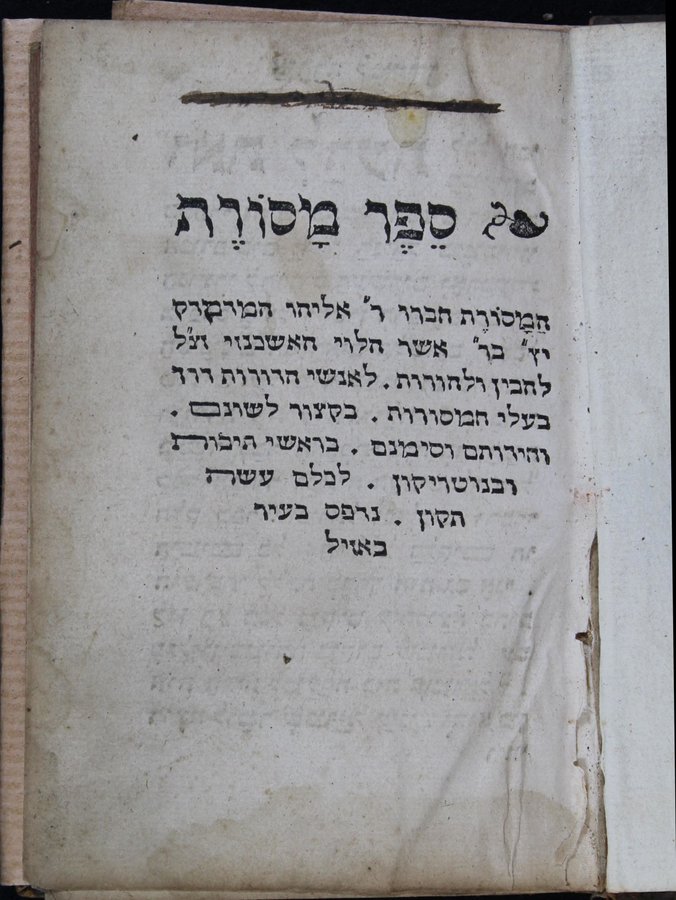 סֵפֶר מָסוֹרֶת
הַמָסוֹרֶת חברו ר' אליהו המדקדק
יץ" בר" אשר הלוי האשכנזי ת"ל
להבין ולהורות . לאנשי הדורות דרך
בעלי המסורות . בקצור לשונם .
וחידותם וסימנם . בראשי תיבות
ובנוטריקון . לכלם עשה
תקון . נדפס בעיר
באזיל